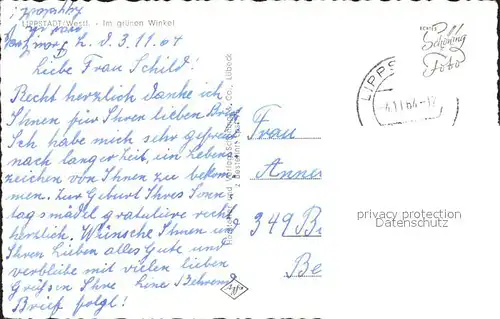 LIPPSTADT/Westf. - Im grünen Winkel
d. 3.11.64
Liebe Frau Schild!
Recht herzlich danke ich
Ihnen für Ihren lieben Brief
Ich habe mich sehr gefreut
nach langer Zeit, ein Lebens
zeichen von Ihnen zu bekom
men. Zur Geburt Ihres Sonn
tagsmädel gratuliere recht
herzlich. Wünsche Ihnen u
Ihren Lieben alles Gute und
verbleibe mit vielen lieben
Grüßen Ihre Line Behrend
Brief folgt!
Schöning & Co., Lübeck
Agfa
ECHTES
Schöning
Foto
LIPPS
-4.11.64-17
Frau
Annem
349 B
Be
privacy protection
Datenschutz